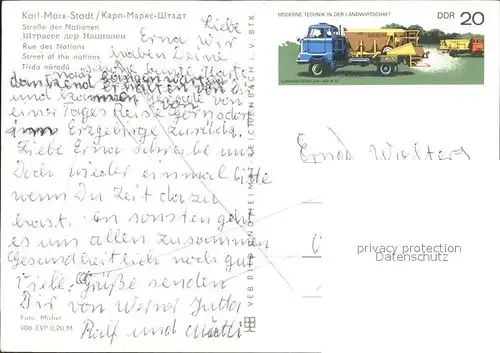 Karl-Marx-Stadt / Карл-Маркс-Штадт
Straße der Nationen
Штрассе дер Национен
Rue des Nations
Street of the nations
Třída národů
Liebe
Erna wir
haben Deine
dankend erhalten
und kommen gerade von
einer Tages Reise
Erzgebirge zurück.
Liebe Erna schreibe uns
Doch wieder einmal bitte
wenn Du Zeit dazu
hast. An sonsten geht
es uns allen zusammen
Gesundheitlich noch gut
Viele Grüße senden
Dir von Werner Jutta
Rolf und Mutti
Foto: Michel
EVP 0,20 M
VEB BILD UND HEIMAT REICHENBACH I. V. BTK
MODERNE TECHNIK IN DER LANDWIRTSCHAFT
DDR 20
Erna Wolters
privacy protection
Datenschutz